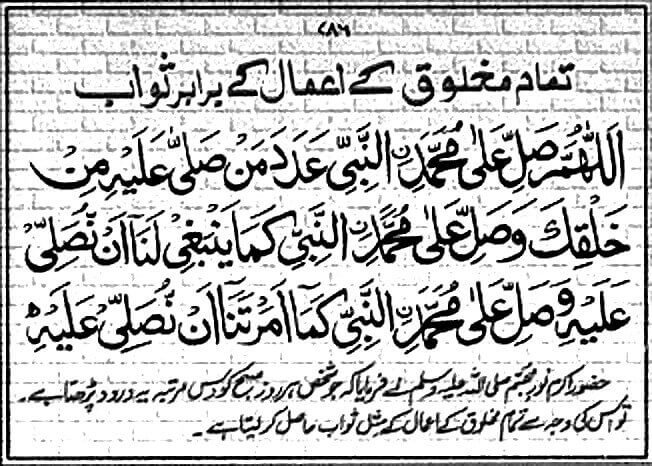 ۷۸۶
تمام مخلوق کے اعمال کے برابر ثواب
اَللّٰهُمَّ صَلِّ عَلٰى مُحَمَّدِنِ النَّبِيِّ عَدَدَ مَنْ صَلّٰى عَلَيْهِ مِنْ
خَلْقِكَ وَصَلِّ عَلٰى مُحَمَّدِنِ النَّبِيِّ كَمَا يَنْبَغِيْ لَنَا اَنْ نُّصَلِّيَ
عَلَيْهِ وَصَلِّ عَلٰى مُحَمَّدِنِ النَّبِيِّ كَمَا اَمَرْتَنَا اَنْ نُّصَلِّيَ عَلَيْهِ ط
حضور اکرم نور مجسّم صلی اللہ علیہ وسلم نے فرمایا کہ جو شخص ہر روز صبح کو دس مرتبہ یہ درود پڑھتا ہے۔
تو اس کی وجہ سے تمام مخلوق کے اعمال کے مثل ثواب حاصل کر لیتا ہے۔